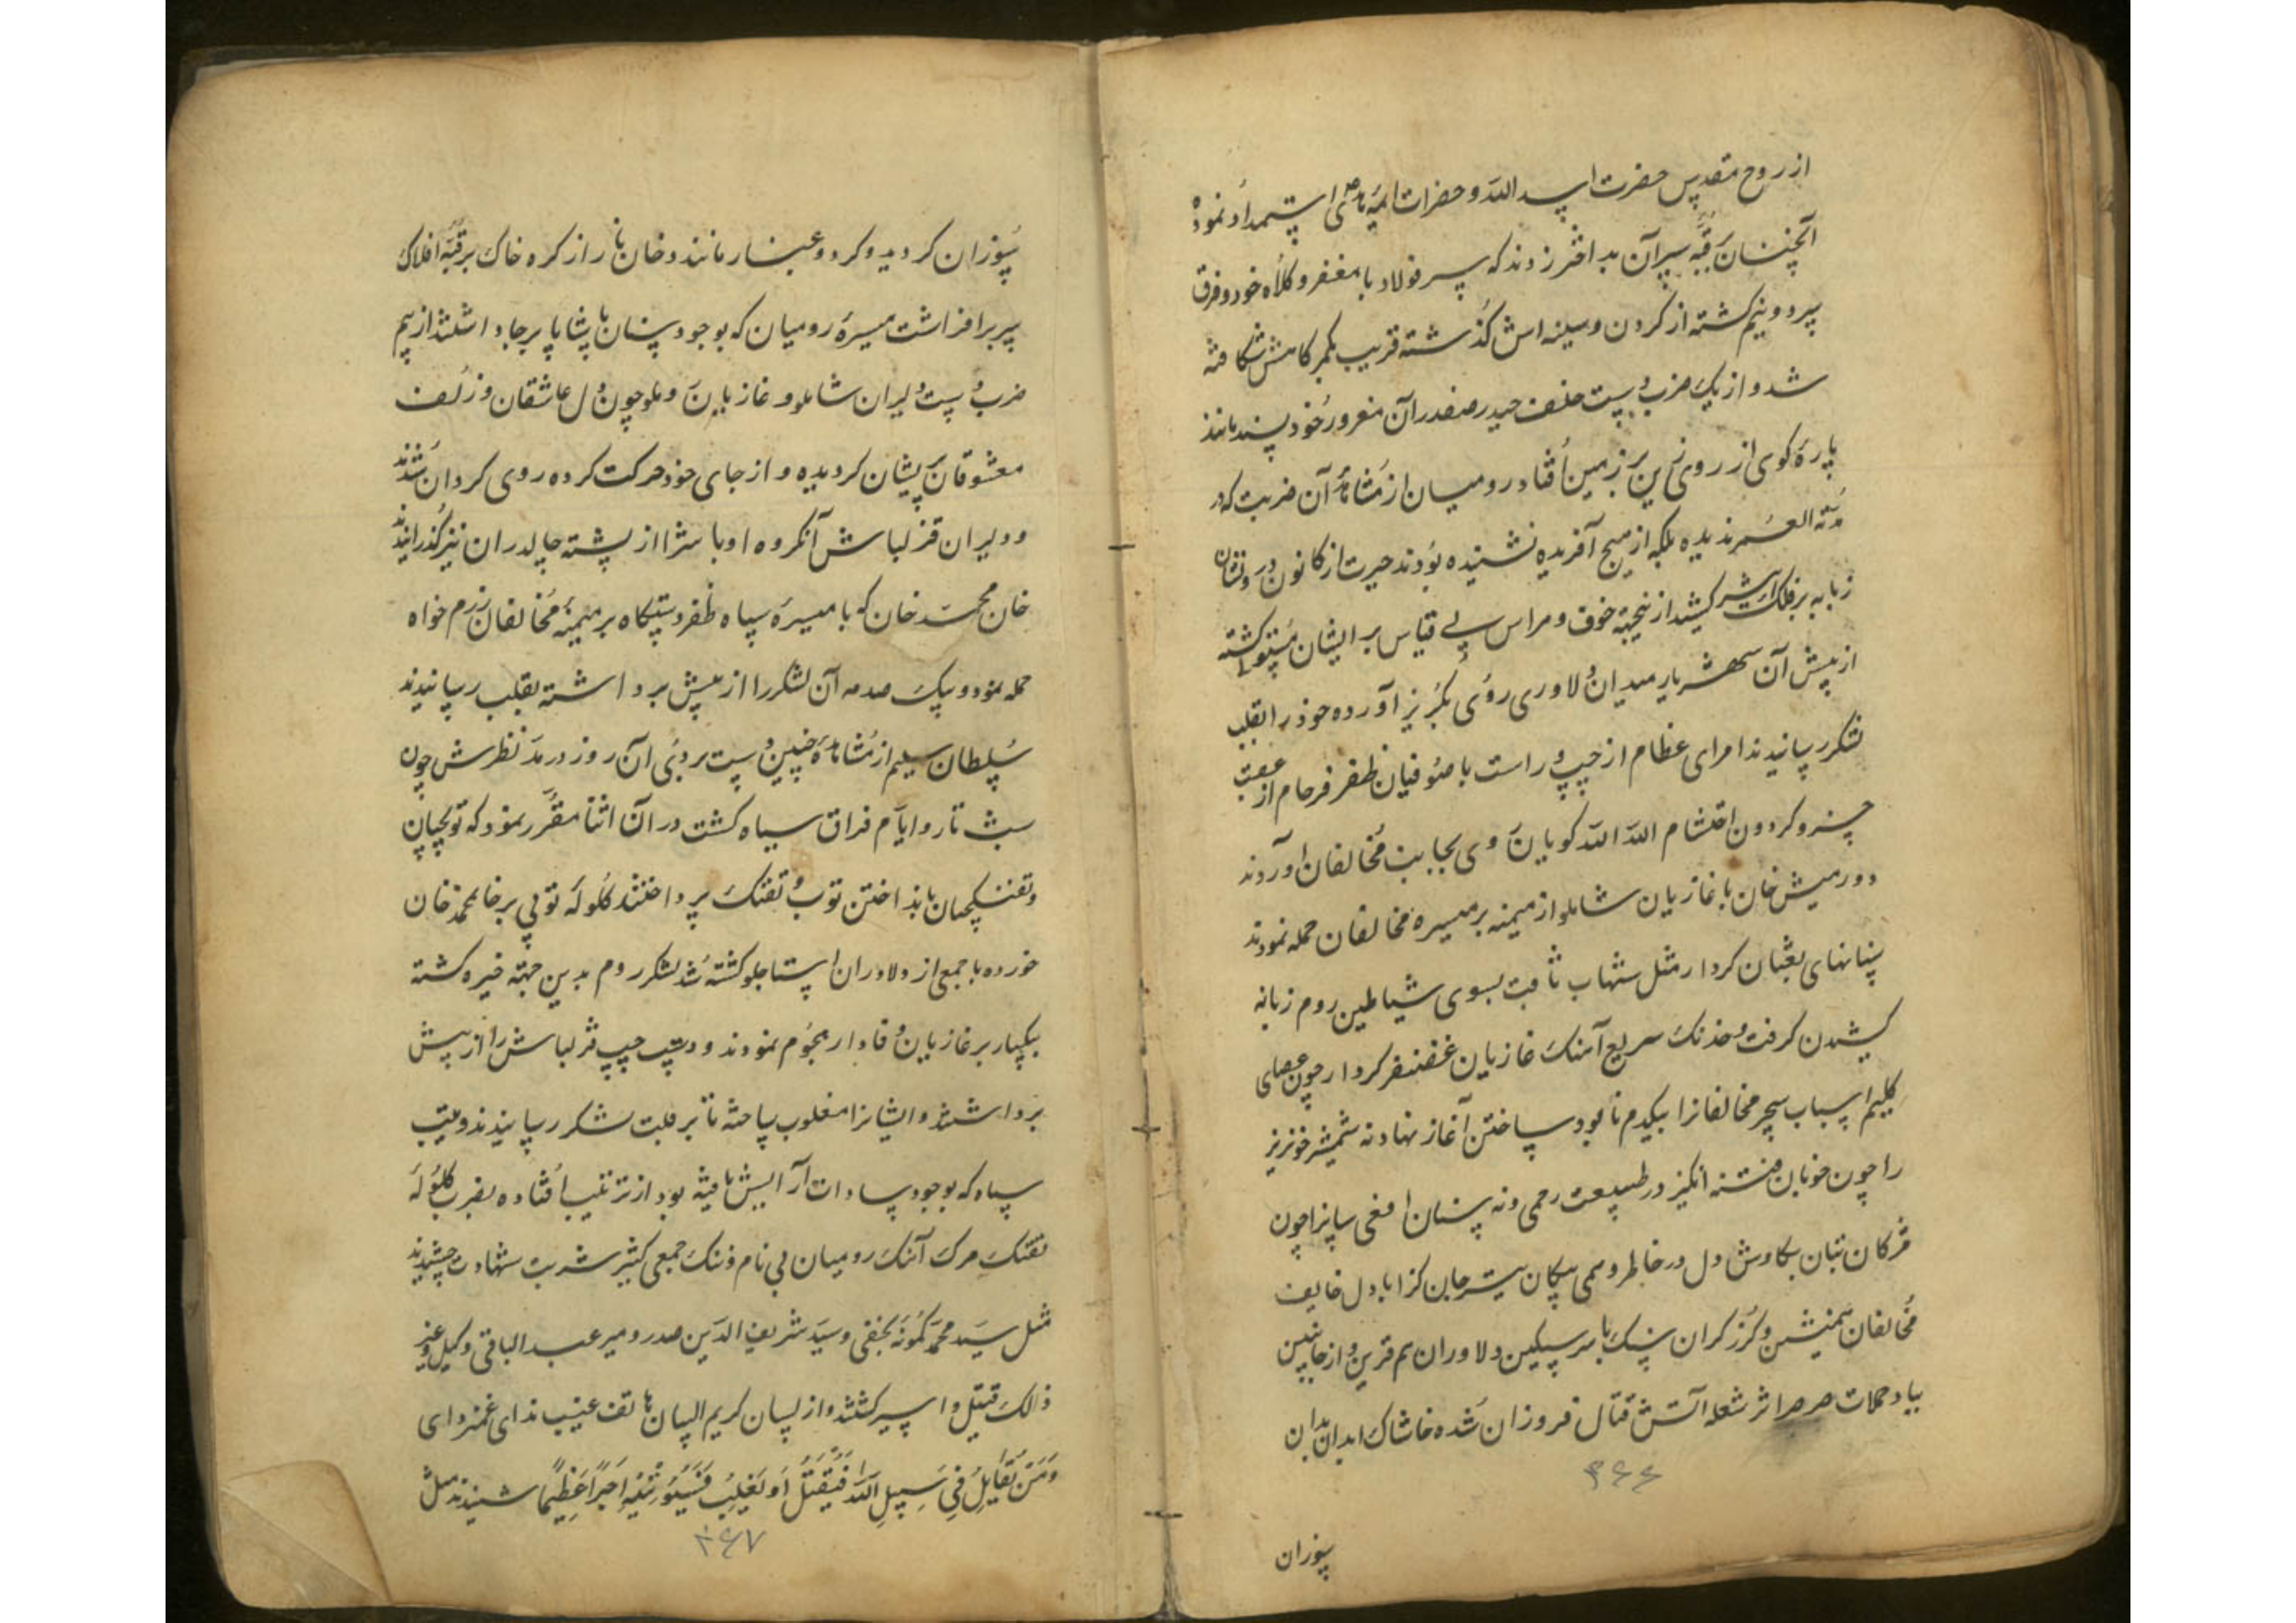 از روح مقدس حضرت اسد الله و حضرات ائمه هدی استمداد نموده
آنچنان بر قبه سپر آن بد اختر زدند که سپر فولاد با مغفر و کلاه خود و فرق
سر دو نیم گشته از گردن و سینه اش گذشته قریب بکمرگاهش شکافته
شد و از یک ضرب دست خلف حیدر صفدر آن مغرور خود پسند مانند
پاره کوی از روی زین بر زمین افتاد و رومیان از مشاهدهٔ آن ضربت که در
مدته العمر ندیده بلکه از هیچ آفریده نشنیده بودند حیرت از کانون درونشان
زبانه بر فلک اثیر کشید از نتیجه خوف و هراس بی قیاس بر ایشان مستولی گشته
از پیش آن شهریار میدان دلاوری روی بگریز آورده خود را بقلب
لشکر رسانیدند امرای عظام از چپ و راست با صوفیان ظفر فرجام از عقب
خسرو کردون احتشام الله الله کویان روی بجانب مخالفان آوردند
و دورمیش خان با غازیان شاملو از میمنه بر میسره مخالفان حمله نمودند
سنانهای ثعبان کردار مثل شهاب ثاقب بسوی شیاطین روم زبانه
کشیدن کرفت و خدنک سریع آهنک غازیان غضنفر کردار چون عصای
کلیم اسباب سحر مخالفانرا بیکدم نابود ساختن آغاز نهاد نه شمشیر خونریز
را چون خوبان فتنه انگیز در طبیعت رحمی و نه سنان افعی سانرا چون
مژکان بتان بکاوش دل در خاطر وهمی پیکان تیر جان کزا با دل خایف
مخالفان همنشین و کرز کران سنک با سر سپکین دلاوران هم قرین و از جانبین
بباد حملات صرصر اثر شعله آتش قتال فروزان شده خاشاک ابدان بدان
۳۶۶
سوزان
سوزان کردید و کرد و غبار مانند دخان نار از کره خاک بر قبه افلاک
سر برافراشت میسرهٔ رومیان که بوجود سنان پاشا پا بر جا داشتند از بیم
ضرب دست دلیران شاملو و غازیان و ملو چون دل عاشقان و زلف
معشوقان پریشان کردیده و از جای خود حرکت کرده روی کردان شدند
و دلیران قزلباش آنکروه اوباش را از پشته چالدران نیز گذرانیدند
خان محمد خان که با میسرهٔ سپاه ظفر دستگاه بر میمنهٔ مخالفان رزم خواه
حمله نمود و بیک صدمه آن لشکر را از پیش برداشته بقلب رسانیدند
سلطان سلیم از مشاهدهٔ چنین دست بردی آن روز در مد نظرش چون
شب تار و ایام فراق سیاه گشت در آن اثنا مقرر نمود که توپچیان
و تفنکچیان بانداختن توپ و تفنک پرداختند کلولهٔ توپی بر خان محمد خان
خورده با جمعی از دلاوران استاجلو کشته شد لشکر روم بدین جهته خیره کشته
بیکبار بر غازیان وفادار هجوم نمودند و دست چپ قزلباش را از پیش
برداشتند و ایشانرا مغلوب ساخته تا بر قلب لشکر رسانیدند و قلب
سپاه که بوجود سادات آرایش یافته بود از ترتیب افتاده بضرب کلولهٔ
تفنک مرک آهنک رومیان بی نام و ننک جمعی کثیر شربت شهادت چشیدند
مثل سید محمد کمونه نجفی و سید شریف الدین صدر و میر عبد الباقی وکیل و غیر
ذالک قتیل و اسیر کشتند و از لسان کریم البیان هاتف غیب ندای غمزدای
وَمَنْ یُقَاتِلْ فِی سَبِیلِ اللهِ فَیُقْتَلْ اَوْ یَغْلِبْ فَسَوْفَ نُؤْتِیهِ اَجْرًا عَظِیمًا شنیدند مثل
۳۶۷